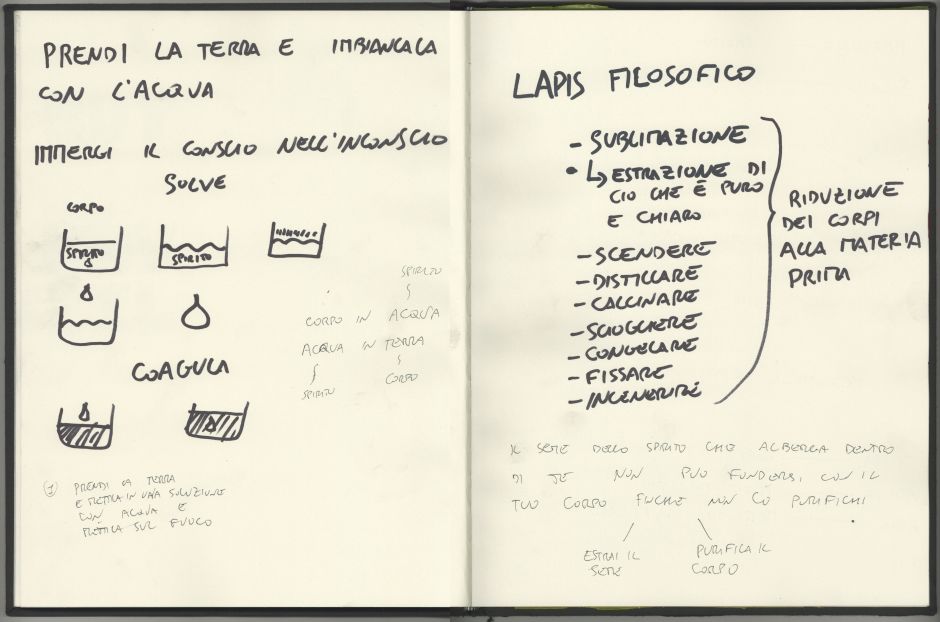 PRENDI LA TERRA E IMBIANCALA
CON L'ACQUA
IMMERGI IL CONSCIO NELL'INCONSCIO
SOLVE
CORPO
SPIRITO
SPIRITO
COAGULA
SPIRITO
CORPO IN ACQUA
ACQUA IN TERRA
SPIRITO
CORPO
1 PRENDI LA TERRA
E METTILA IN UNA SOLUZIONE
CON ACQUA E
METTILA SUL FUOCO
LAPIS FILOSOFICO
- SUBLIMAZIONE
• ↳ ESTRAZIONE DI
CIO CHE È PURO
E CHIARO
- SCENDERE
- DISTILLARE
- CALCINARE
- SCIOGLIERE
- CONGELARE
- FISSARE
- INCENERIRE
RIDUZIONE
DEI CORPI
ALLA MATERIA
PRIMA
IL SEME DELLO SPIRITO CHE ALBERGA DENTRO
DI TE NON PUO FONDERSI CON IL
TUO CORPO FINCHE NON LO PURIFICHI
ESTRAI IL
SEME
PURIFICA IL
CORPO